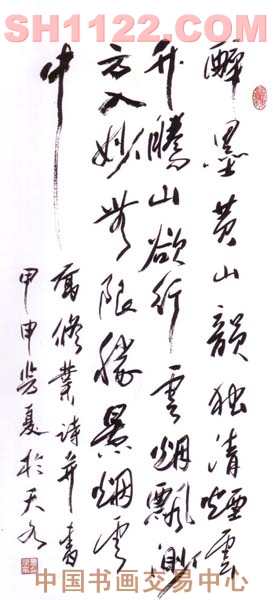 SH1122.COM
醉墨黄山韵独清烟云
升腾山欲行云烟飘渺
方入妙无限胜景烟云
中
修业诗并书
甲申岁夏於天
中国书画交易中心